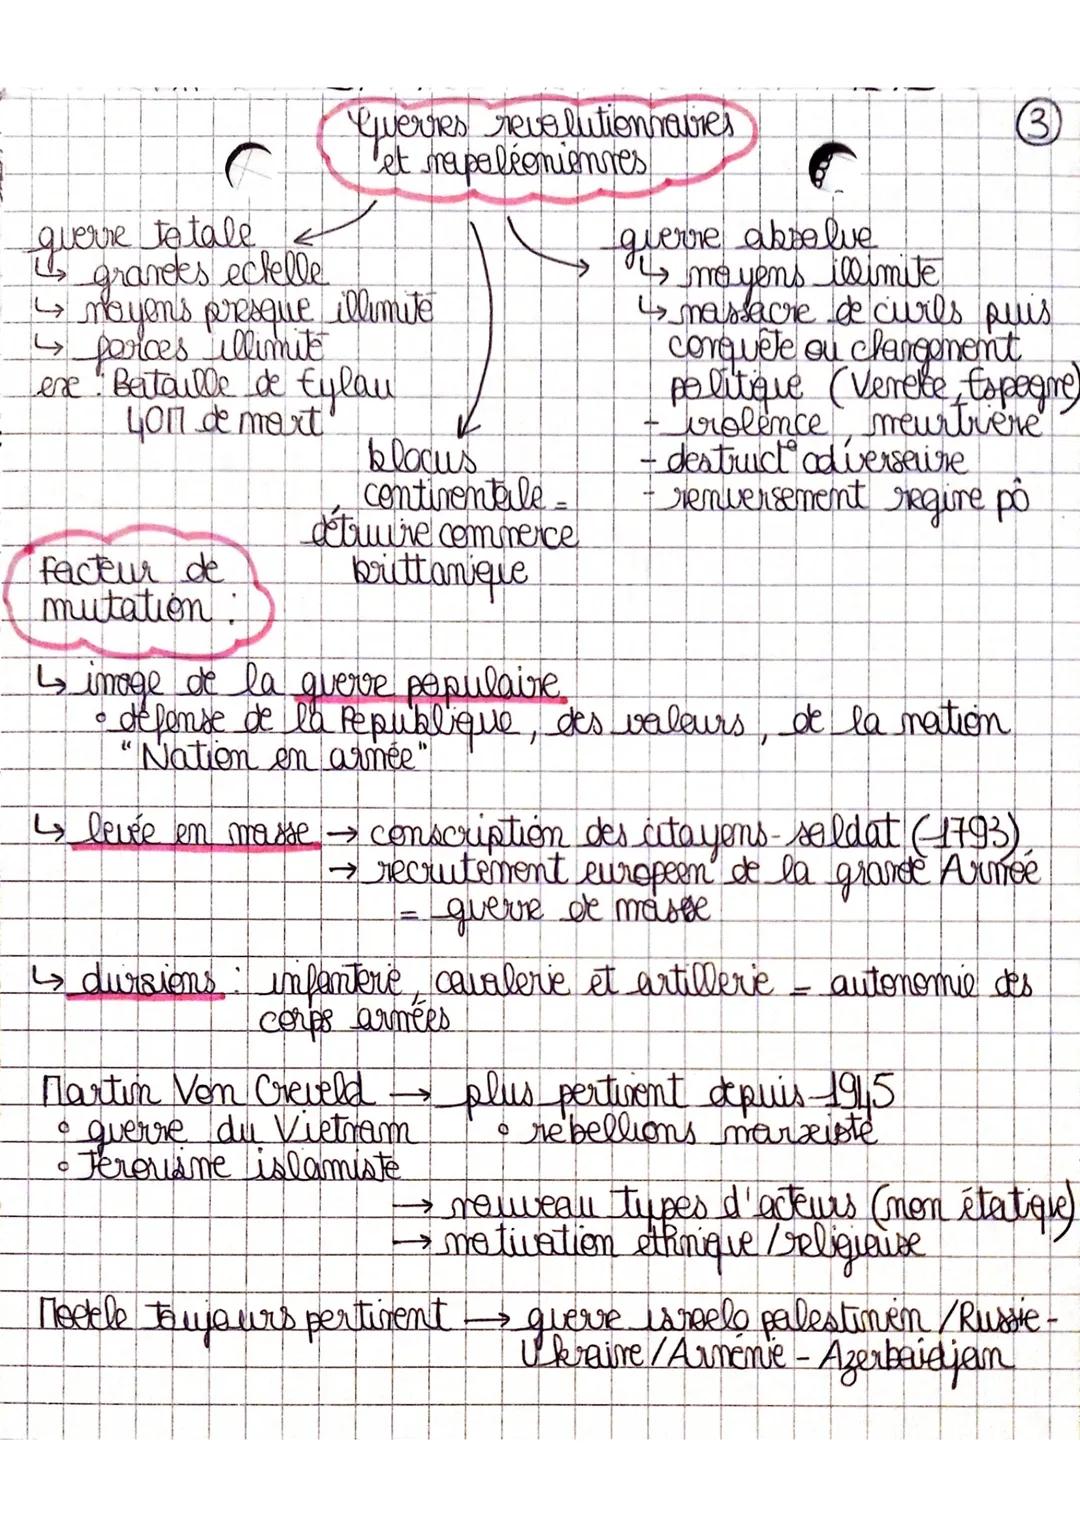 Guerres revolutionnaires
et napoléoniennes
3
guerre totale
↳ grandes echelle
↳ moyens presque illimité
↳ forces illimité
ex : Bataille de Eylau
40M de mort
blocus
continentale =
détruire commerce
brittanique
guerre absolue
↳ moyens illimité
↳ massacre de civils puis
conquête ou changement
politique (Vendée, Espagne)
- violence meurtrière
- destruct° adversaire
- renversement regime pô
facteur de
mutation :
↳ image de la guerre populaire
• défense de la République, des valeurs, de la nation
"Nation en armée"
↳ levée en masse → conscription des citoyens-soldat (1793)
→ recrutement européen de la grande Armée
= guerre de masse
↳ divisions : infanterie, cavalerie et artillerie = autonomie des
corps armées
Martin Von Creveld → plus pertinent depuis 1945
• guerre du Vietnam • rebellions marxiste
• Terorisme islamiste
→ nouveau types d'acteurs (non étatique)
→ motivation ethnique / religieuse
Modèle toujours pertinent → guerre israelo palestinien / Russie-
Ukraine / Arménie - Azerbaidjan